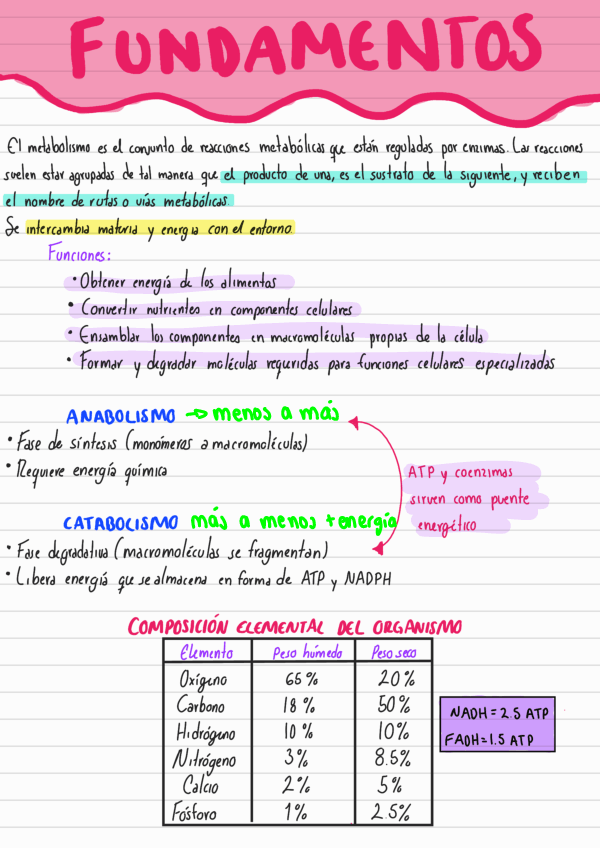 FUNDAMENTOS
El metabolismo es el conjunto de reacciones metabólicas que están reguladas por enzimas. Las reacciones
suelen estar agrupadas de tal manera que el producto de una, es el sustrato de la siguiente, y reciben
el nombre de rutas o vías metabólicas.
Se intercambia materia y energia con el entorno.
Funciones:
• Obtener energía de los alimentos
• Convertir nutrientes en componentes celulares
• Ensamblar los componentes en macromoléculas propias de la célula
• Formar y degradar moléculas requridas para funciones celulares especializadas
ANABOLISMO → menos a más
• Fase de síntesis (monómeros a macromoléculas)
• Requiere energía química
ATP y coenzimas
sirven como puente
energético
CATABOLISMO más a menos + energía
• Fase degradativa (macromoléculas se fragmentan)
• Libera energía que se almacena en forma de ATP y NADPH
COMPOSICIÓN ELEMENTAL DEL ORGANISMO
Elemento Peso húmedo Peso seco
Oxígeno 65% 20%
Carbono 18% 50%
Hidrógeno 10% 10%
Nitrógeno 3% 8.5%
Calcio 2% 5%
Fósforo 1% 2.5%
NADH = 2.5 ATP
FADH = 1.5 ATP